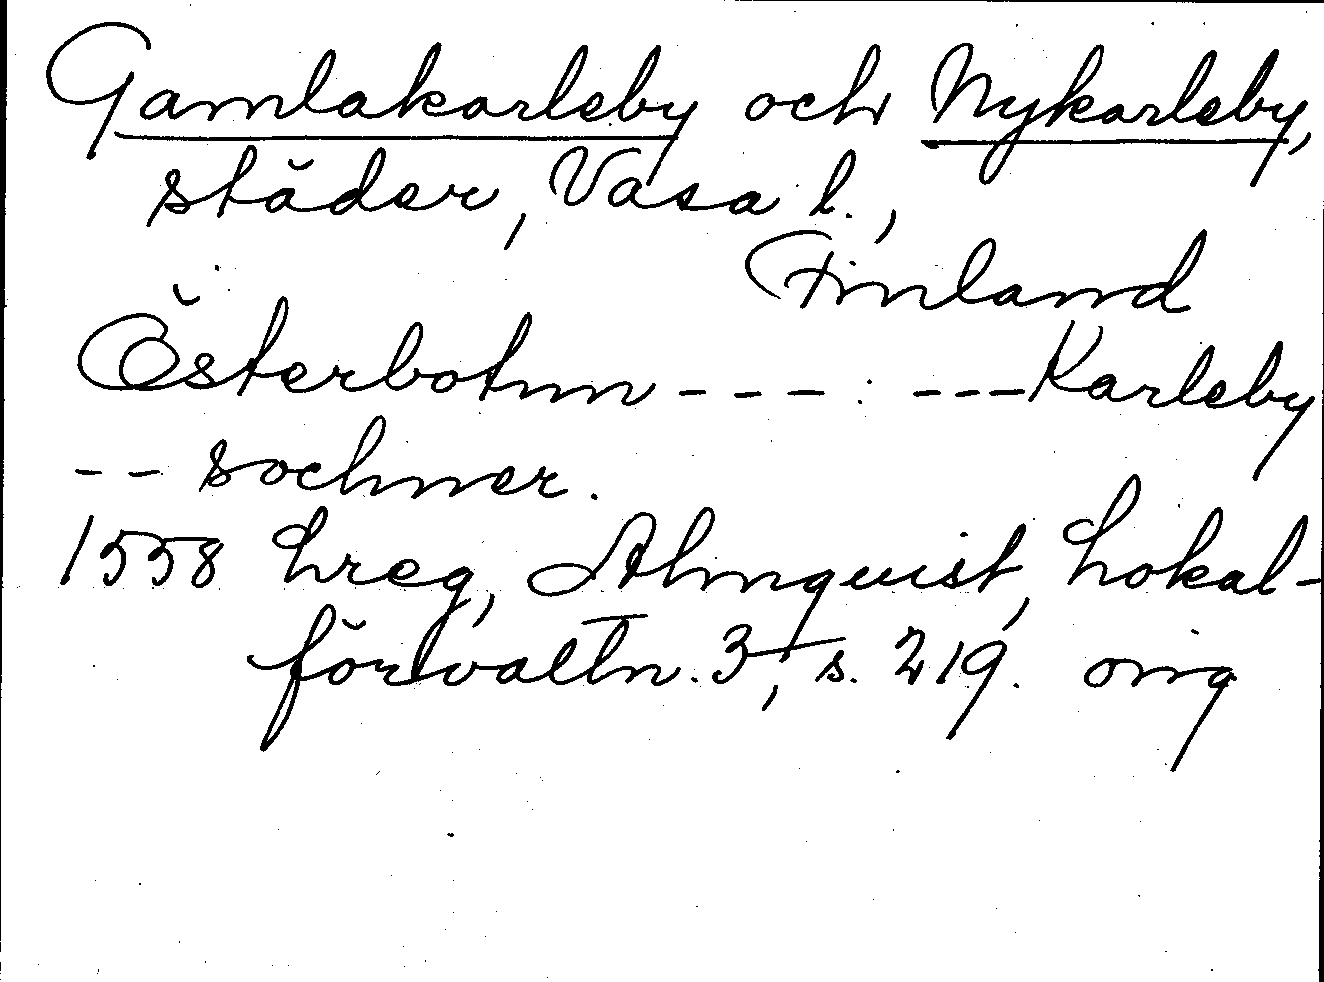 Gamlakarleby och Nykarleby,
städer, Vasa l.,
Finland
Östérbotnn - - - : - - - Karleby
- - sochner.
1558 Lreg, Almquist, Lokal-
förvaltn. 3, s. 219. orig